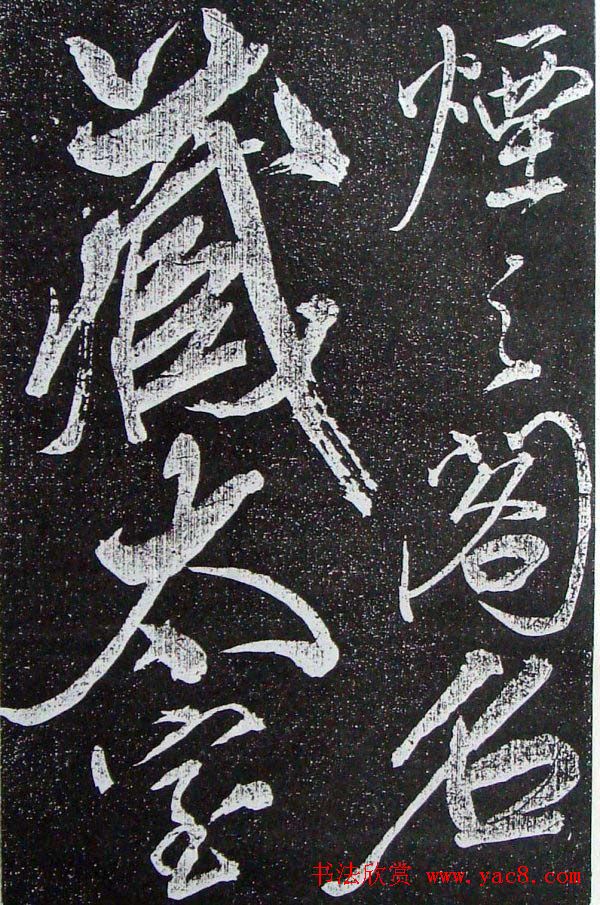 煙之閣名
藏太室
书法欣赏 www.yac8.com